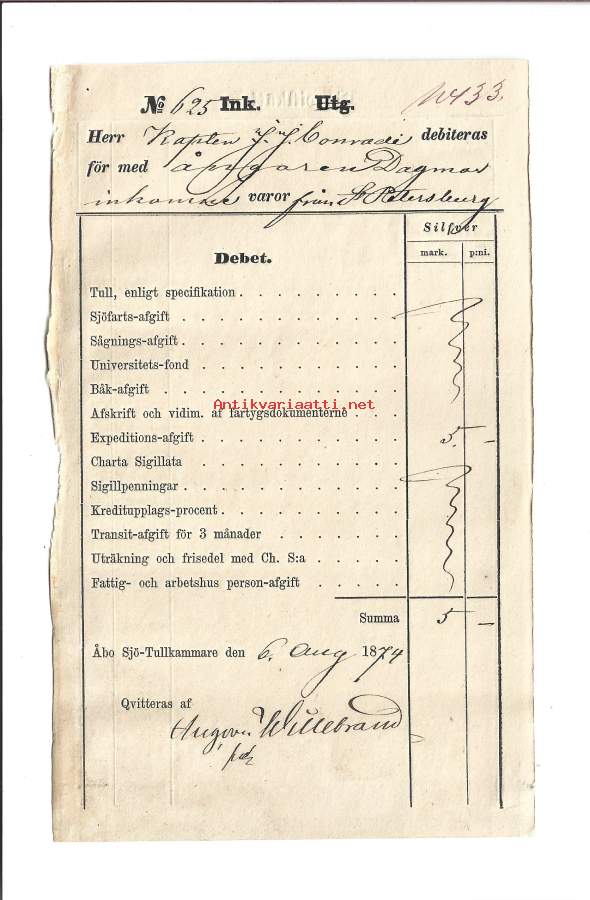 № 625 Ink. Utg. 133.
Herr Kapten J. J. Conradi debiteras
för med ångaren Dagmar
inkomne varor från St Petersburg
Silfver
mark. p:ni.
Debet.
Tull, enligt specifikation
Sjöfarts-afgift
Sågnings-afgift
Universitets-fond
Båk-afgift
Antikvariaatti.net
Afskrift och vidim. af fartygsdokumenterne
Expeditions-afgift 5. —
Charta Sigillata
Sigillpenningar
Kreditupplags-procent
Transit-afgift för 3 månader
Uträkning och frisedel med Ch. S:a
Fattig- och arbetshus person-afgift
Summa 5 —
Åbo Sjö-Tullkammare den 6. Aug 1874
Qvitteras af
Hugo v. Willebrand